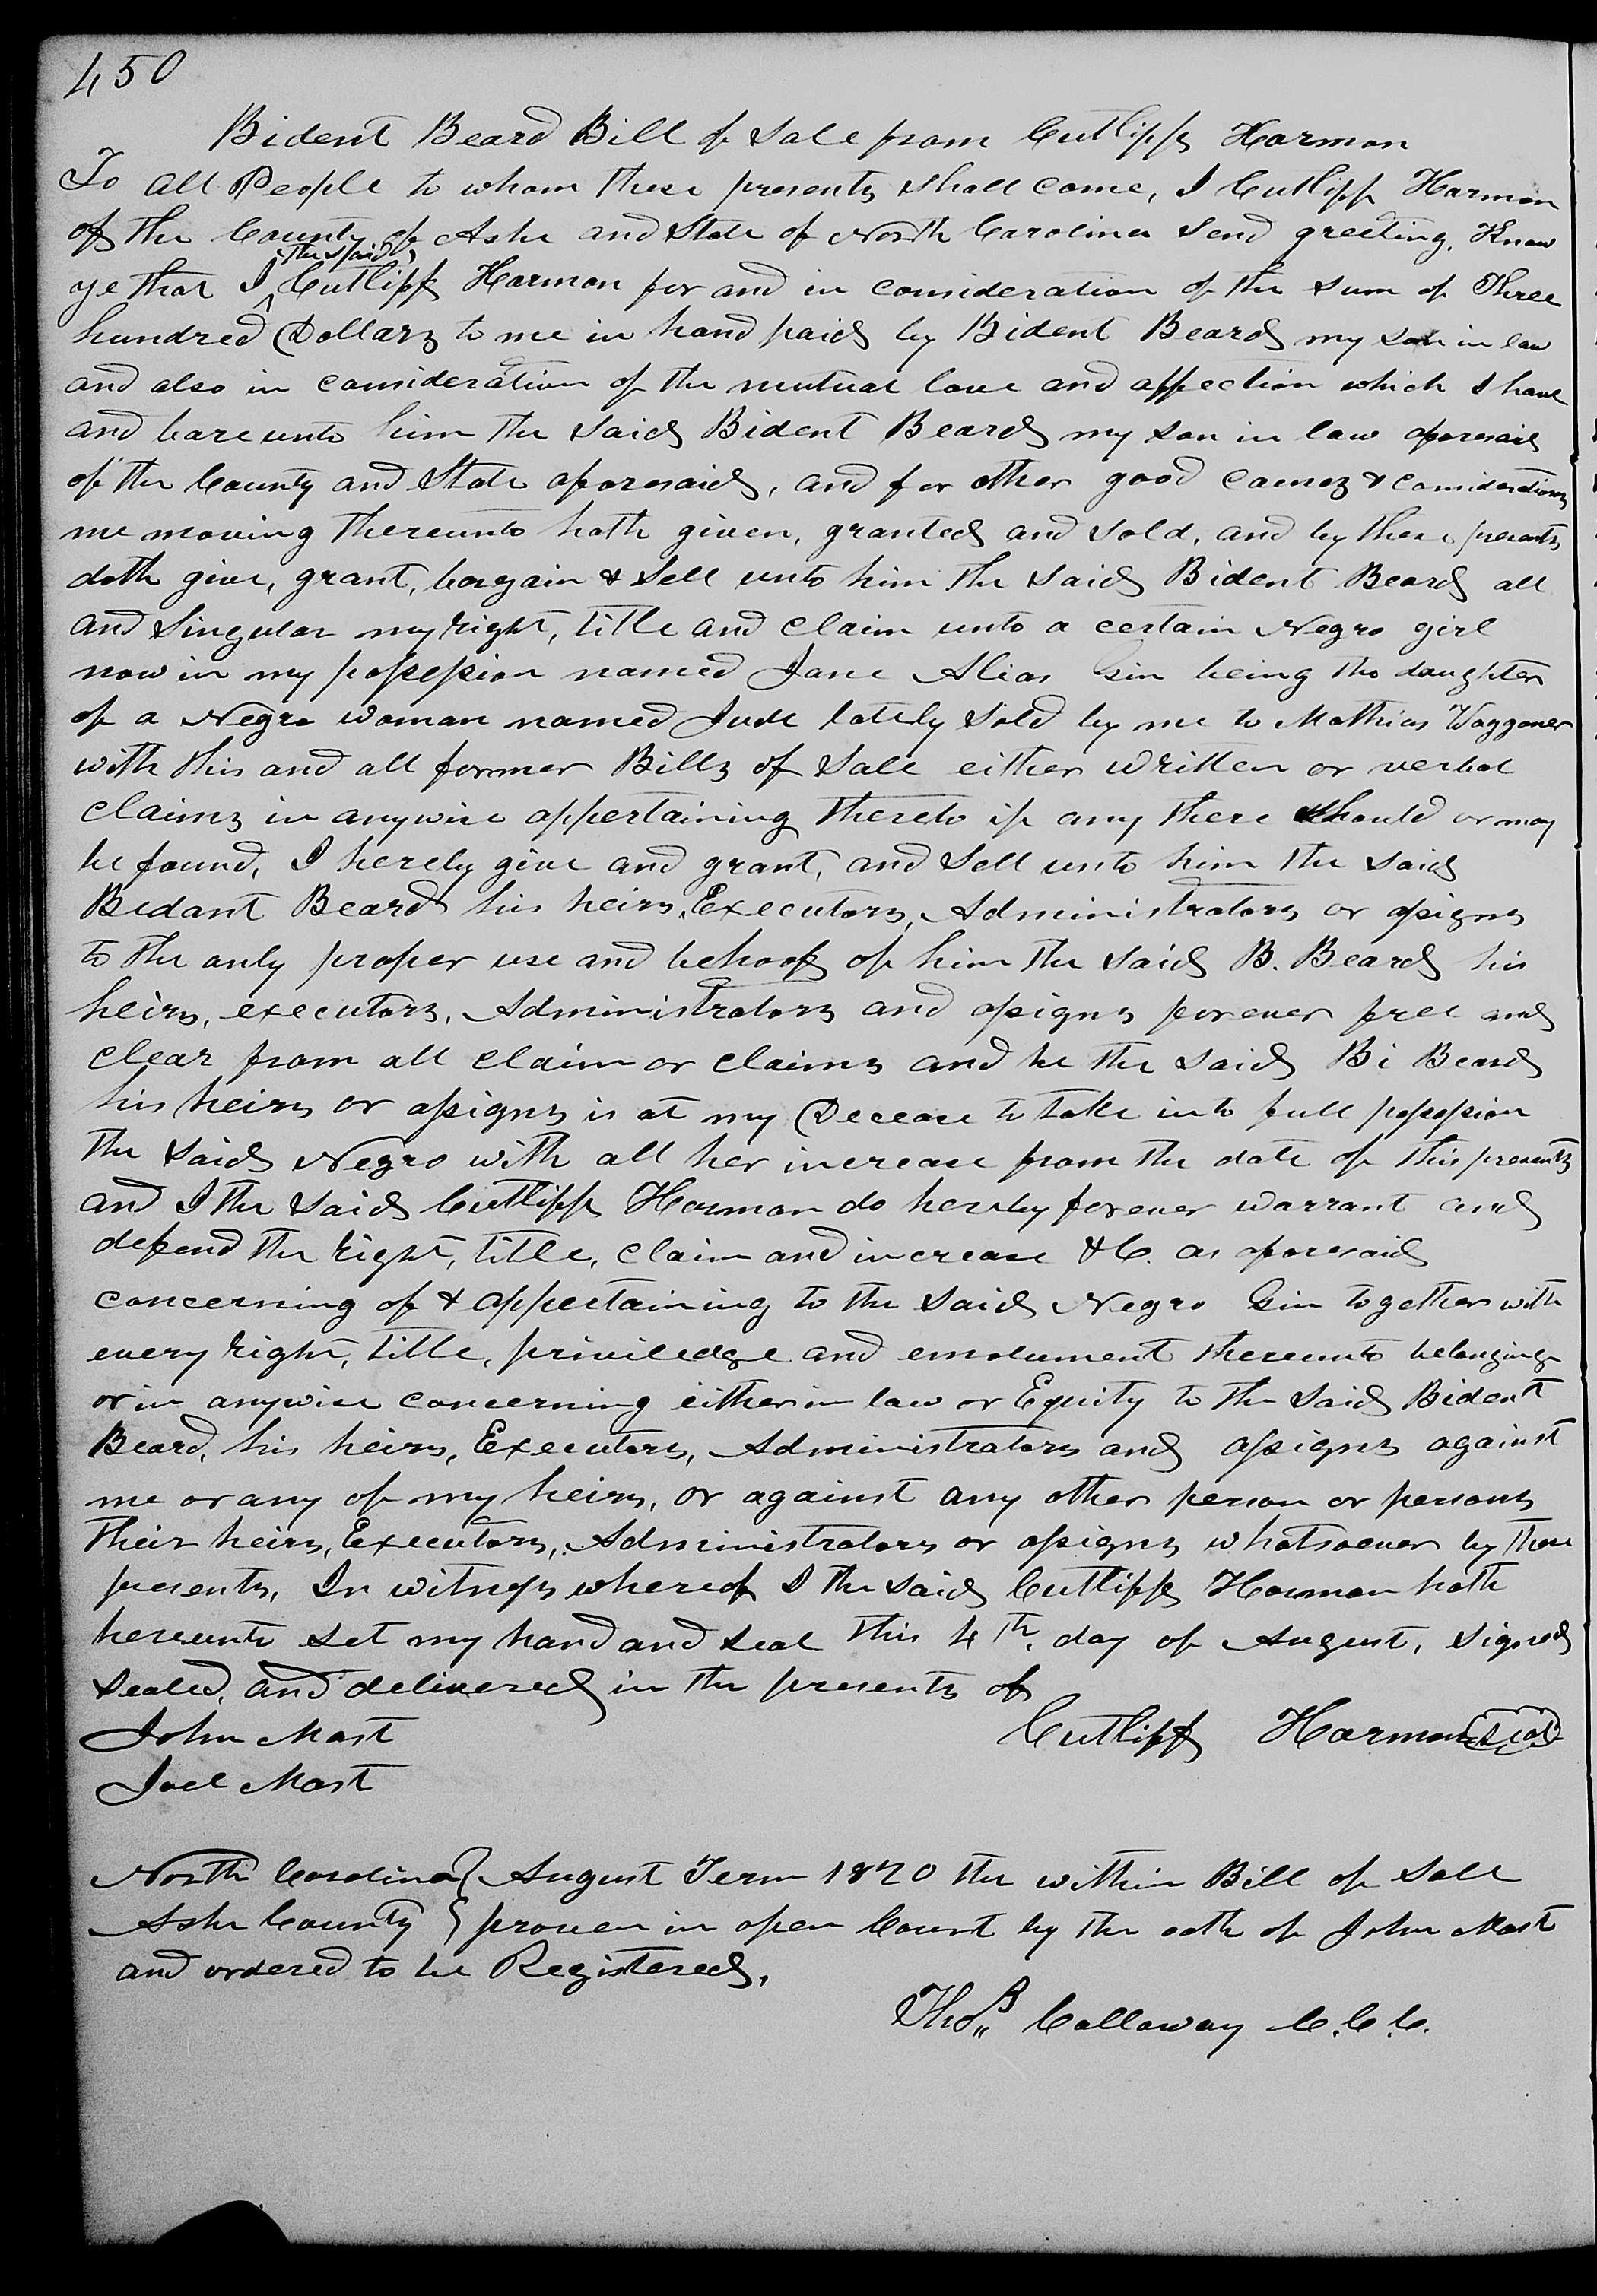 450
Bident Beard Bill of Sale from Cutlipp Harmon
To all People to whom these presents shall come, I Cutlipp Harmon
of the County of Ashe and State of North Carolina send greeting. Know
ye that I the said Cutlipp Harmon for and in consideration of the sum of Three
hundred Dollars to me in hand paid by Bident Beard my son in law
and also in consideration of the mutual love and affection which I have
and bare unto him the said Bident Beard my son in law aforesaid
of the County and State aforesaid, and for other good causes & considerations
me moving thereunto hath given, granted and sold, and by these presents
doth give, grant, bargain & sell unto him the said Bident Beard all
and singular my right, title and claim unto a certain Negro girl
now in my possession named Jane Alias Gin being the daughter
of a Negro woman named Jude lately sold by me to Mathias Waggoner
with this and all former Bills of Sale either written or verbal
claims in anywise appertaining thereto if any there should or may
be found, I hereby give and grant, and sell unto him the said
Bidant Beard his heirs, Executors, Administrators or assigns
to the only proper use and behoof of him the said B. Beard his
heirs, executors, Administrators and assigns forever free and
clear from all claim or claims and he the said Bi Beard
his heirs or assigns is at my Decease to take into full possession
the said Negro with all her increase from the date of this presents
and I the said Cutlipp Harman do hereby forever warrant and
defend the right, title, claim and increase &C. as aforesaid
concerning of & appertaining to the said Negro Gin together with
every right, title, priviledge and emolument thereunto belonging
or in anywise concerning either in law or Equity to the said Bident
Beard, his heirs, Executors, Administrators and assigns against
me or any of my heirs, or against any other person or persons
their heirs, Executors, Administrators or assigns whatsoever by these
presents, In witness whereof I the said Cutlipp Harman hath
hereunto set my hand and seal this 4th. day of August, signed
sealed, and delivered in the presents of
John Mast Cutlipp Harmon seal
Joel Mast
North Carolina } August Term 1820 the within Bill of Sale
Ashe County } proven in open Court by the oath of John Mast
and ordered to be Registered.
Thos. Callaway C.C.C.